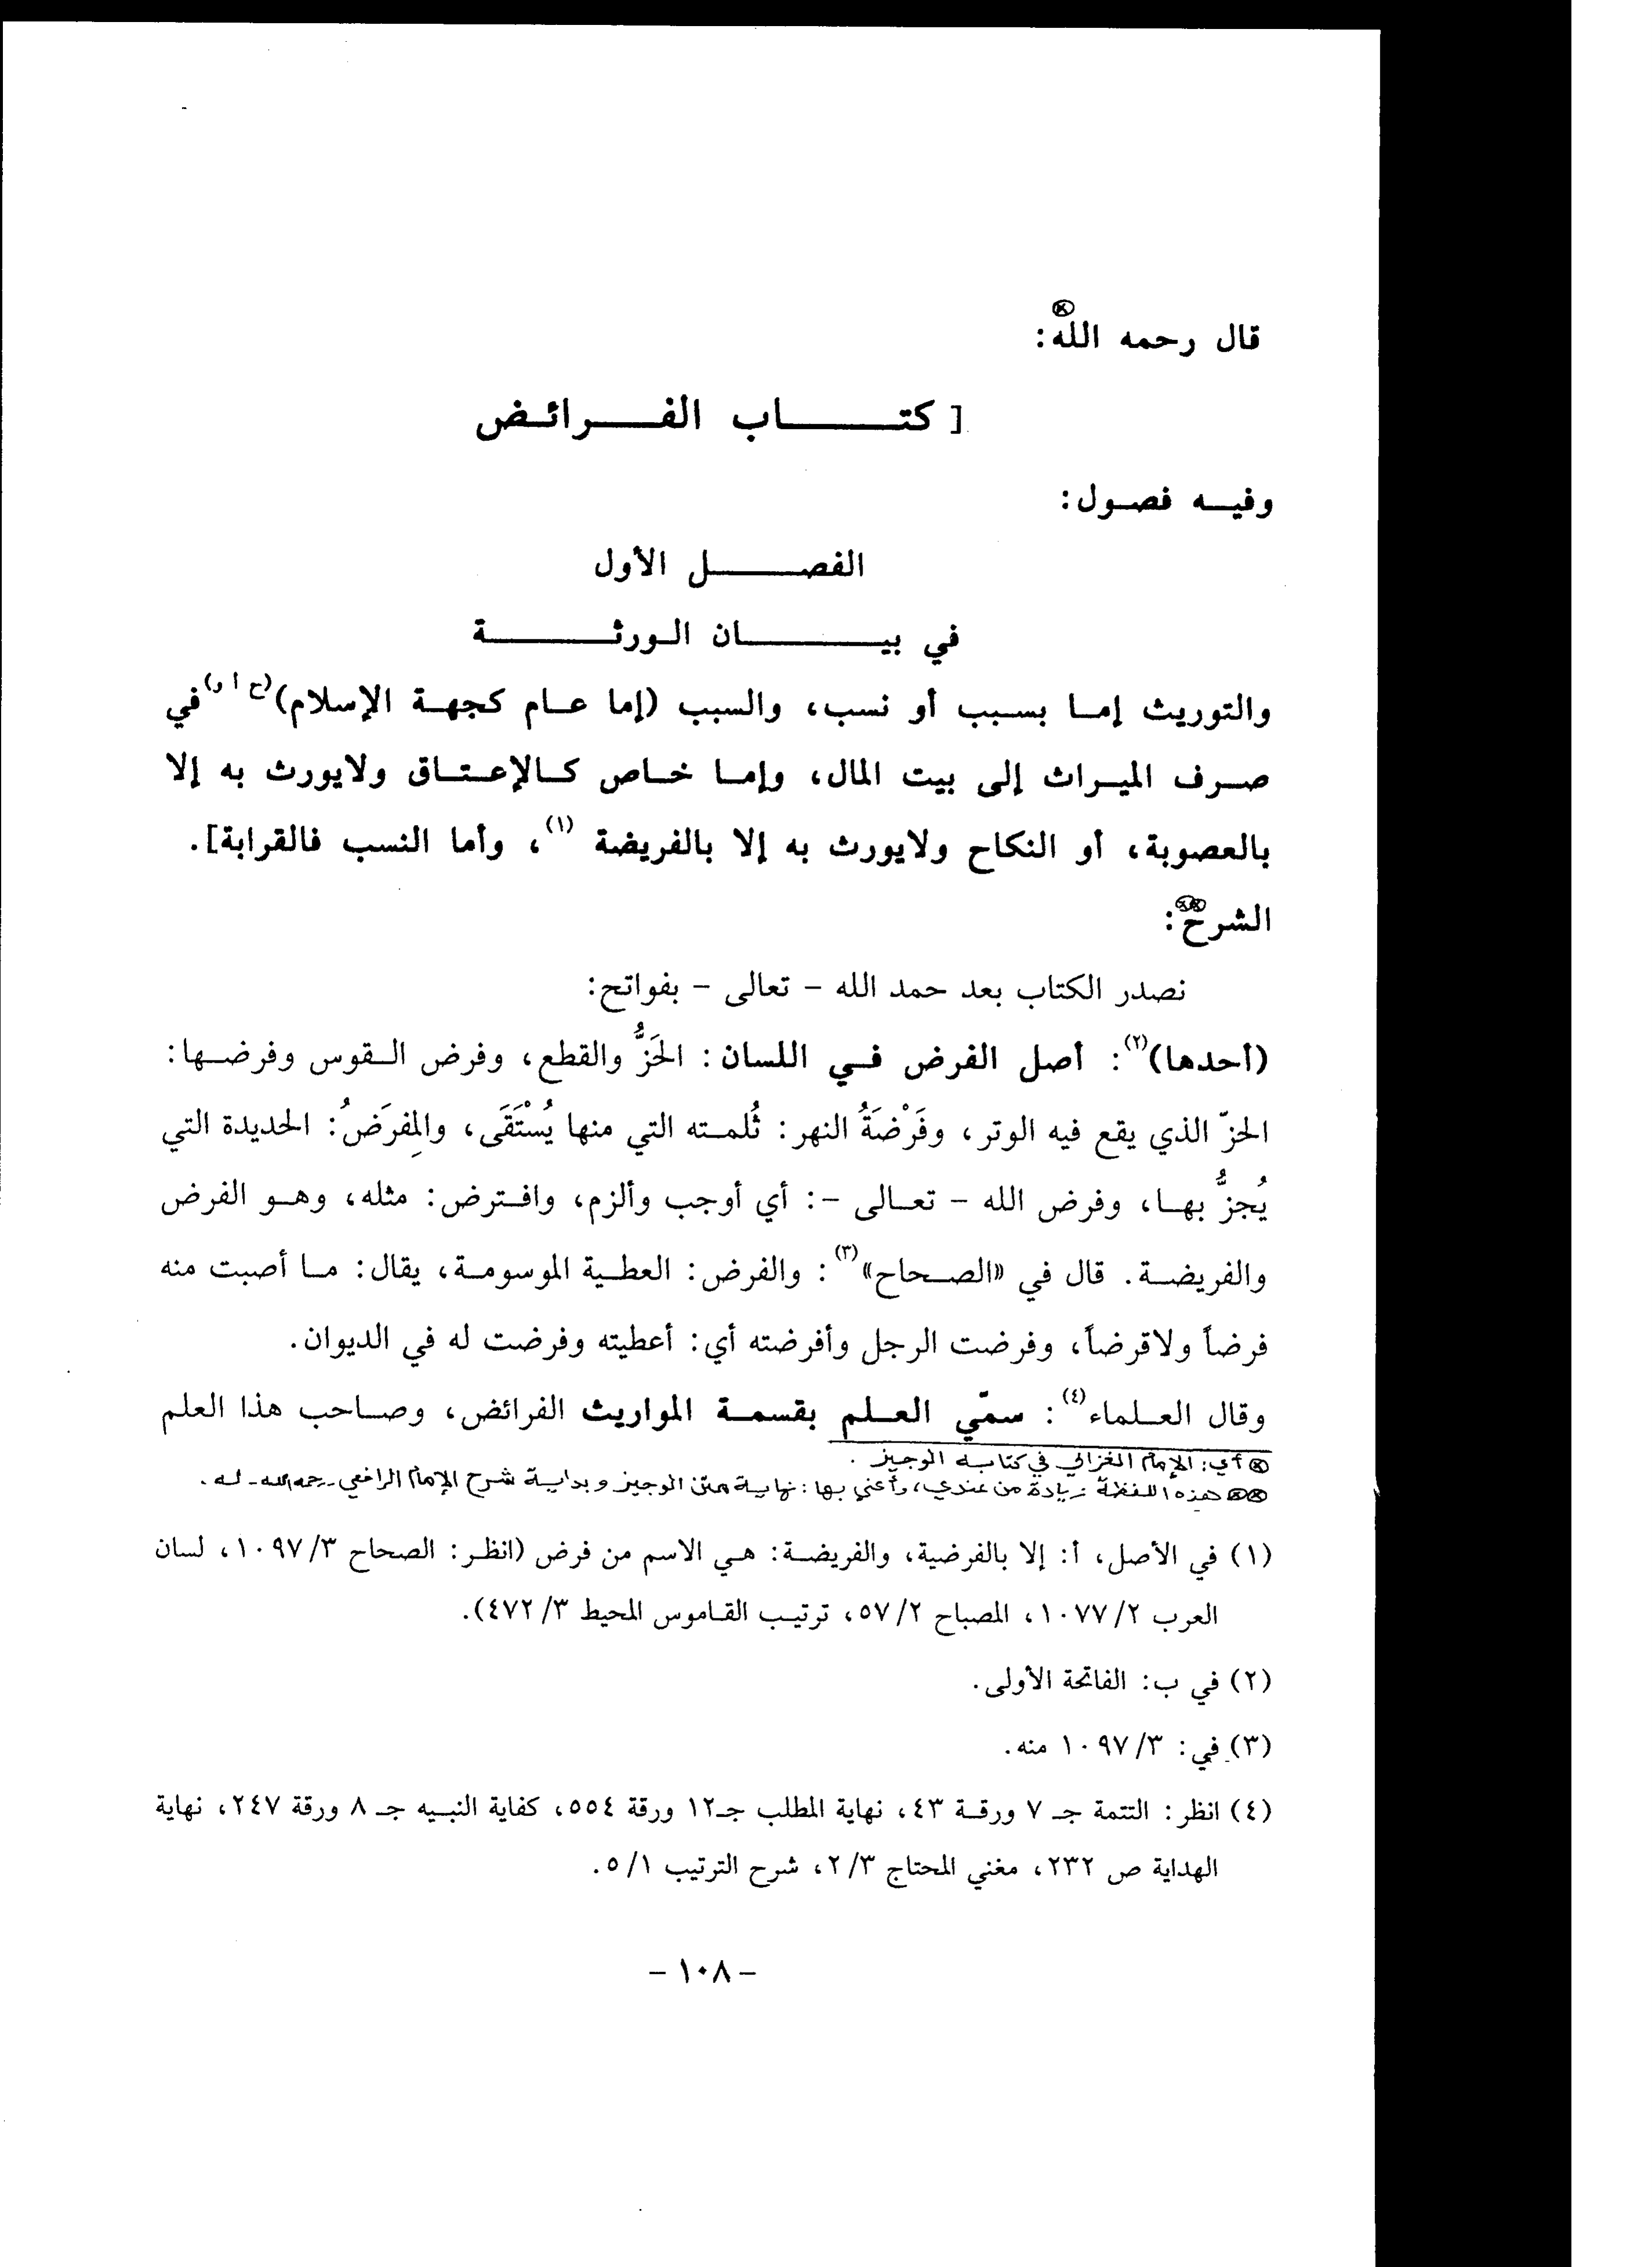 قال رحمه الله⊗:
[ كتاب الفرائض
وفيه فصول:
الفصل الأول
في بيان الورثة
والتوريث إما بسبب أو نسب، والسبب (إما عام كجهة الإسلام)(ح أ و) في
صرف الميراث إلى بيت المال، وإما خاص كالإعتاق ولايورث به إلا
بالعصوبة، أو النكاح ولايورث به إلا بالفريضة (١)، وأما النسب فالقرابة].
الشرح⊗⊗:
نصدر الكتاب بعد حمد الله - تعالى - بفواتح:
(أحدها)(٢): أصل الفرض في اللسان: الحَزُّ والقطع، وفرض القوس وفرضها:
الحزّ الذي يقع فيه الوتر، وفَرْضَةُ النهر: ثُلمته التي منها يُسْتَقَى، والمِفرَضُ: الحديدة التي
يُجزُّ بها، وفرض الله - تعالى -: أي أوجب وألزم، وافترض: مثله، وهو الفرض
والفريضة. قال في «الصحاح»(٣): والفرض: العطية الموسومة، يقال: ما أصبت منه
فرضاً ولاقرضاً، وفرضت الرجل وأفرضته أي: أعطيته وفرضت له في الديوان.
وقال العلماء(٤): سمّي العلم بقسمة المواريث الفرائض، وصاحب هذا العلم
⊗ أي: الإمام الغزالي في كتابه الوجيز.
⊗⊗ هذه اللفظة زيادة من عندي، وأعني بها: نهاية متن الوجيز وبداية شرح الإمام الرافعي - رحمه الله - له.
(١) في الأصل، أ: إلا بالفرضية، والفريضة: هي الاسم من فرض (انظر: الصحاح ١٠٩٧/٣، لسان
العرب ١٠٧٧/٢، المصباح ٥٧/٢، ترتيب القاموس المحيط ٤٧٢/٣).
(٢) في ب: الفاتحة الأولى.
(٣) في: ١٠٩٧/٣ منه.
(٤) انظر: التتمة جـ ٧ ورقة ٤٣، نهاية المطلب جـ١٢ ورقة ٥٥٤، كفاية النبيه جـ ٨ ورقة ٢٤٧، نهاية
الهداية ص ٢٣٢، مغني المحتاج ٢/٣، شرح الترتيب ٥/١.
- ١٠٨ -